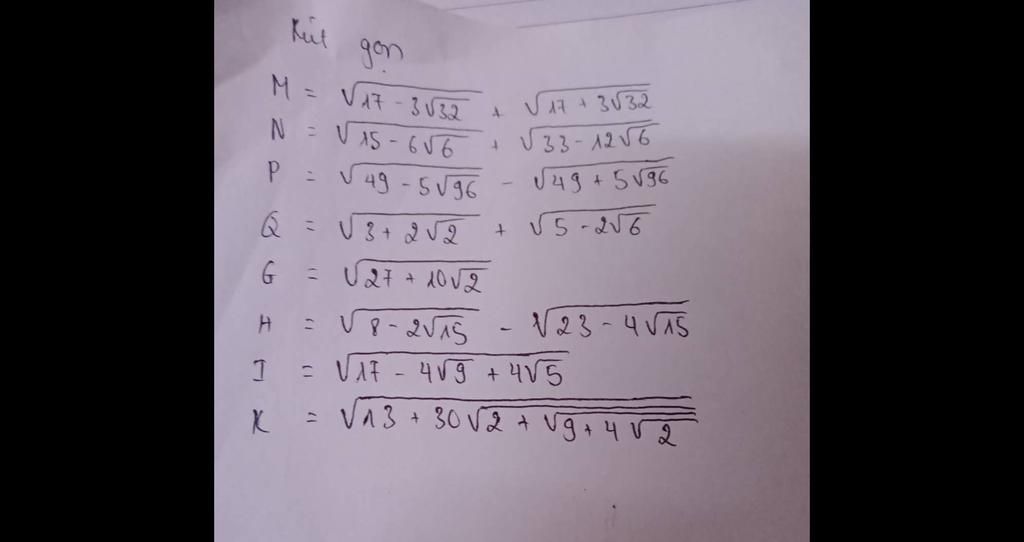 Rút gọn
M = √(17 - 3√32) + √(17 + 3√32)
N = √(15 - 6√6) + √(33 - 12√6)
P = √(49 - 5√96) - √(49 + 5√96)
Q = √(3 + 2√2) + √(5 - 2√6)
G = √(27 + 10√2)
H = √(8 - 2√15) - √(23 - 4√15)
I = √(17 - 4√9 + 4√5)
K = √(13 + 30√(2 + √(9 + 4√2)))